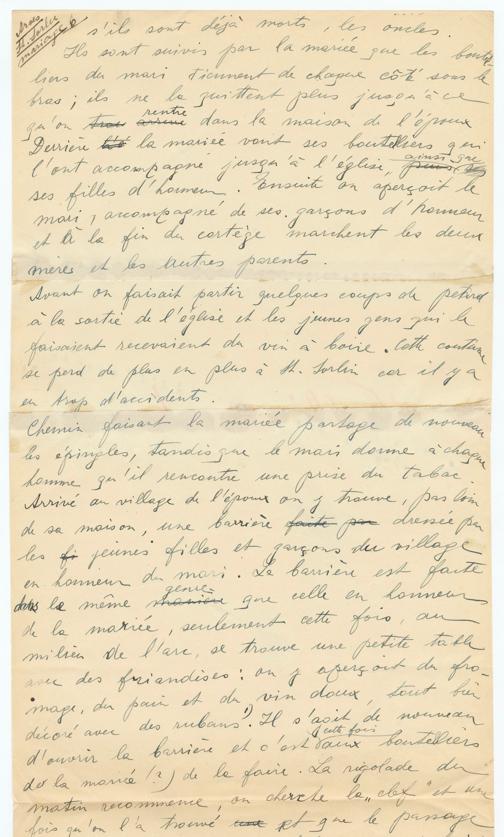 Arves
St. Sorlin
mariage 6
s'ils sont déjà morts, les oncles.
Ils sont suivis par la mariée que les boutel
liers du mari tiennent de chaque côté sous le
bras; ils ne la quittent plus jusqu'à ce
qu'on rentre dans la maison de l'époux
Derrière la mariée vont ses boutelliers qui
l'ont accompagné jusqu'à l'église, ainsi que
ses filles d'honneur. Ensuite on aperçoit le
mari, accompagné de ses garçons d'honneur
et à la fin du cortège marchent les deux
mères et les autres parents.
Avant on faisait partir quelques coups de petard
à la sortie de l'église et les jeunes gens qui le
faisaient recevaient du vin à boire. Cette coutume
se perd de plus en plus à St. Sorlin car il y a
eu trop d'accidents.
Chemin faisant la mariée partage de nouveau
les épingles, tandis que le mari donne à chaque
homme qu'il rencontre une prise du tabac
Arrivé au village de l'époux on y trouve, pas loin
de sa maison, une barrière faite par dressée par
les jeunes filles et garçons du village
en honneur du mari. La barrière est faite
dans le même genre manière que celle en honneur
de la mariée, seulement cette fois, au
milieu de l'arc, se trouve une petite table
avec des friandises: on y aperçoit du fro-
mage, du pain et du vin doux, tout bien
décoré avec des rubans. Il s'agit de nouveau
d'ouvrir la barrière et c'est cette fois aux boutelliers
de la mariée (?) de la faire. La rigolade du
matin recommence, on cherche la „clef" et une
fois qu'on l'a trouvé et que le passage